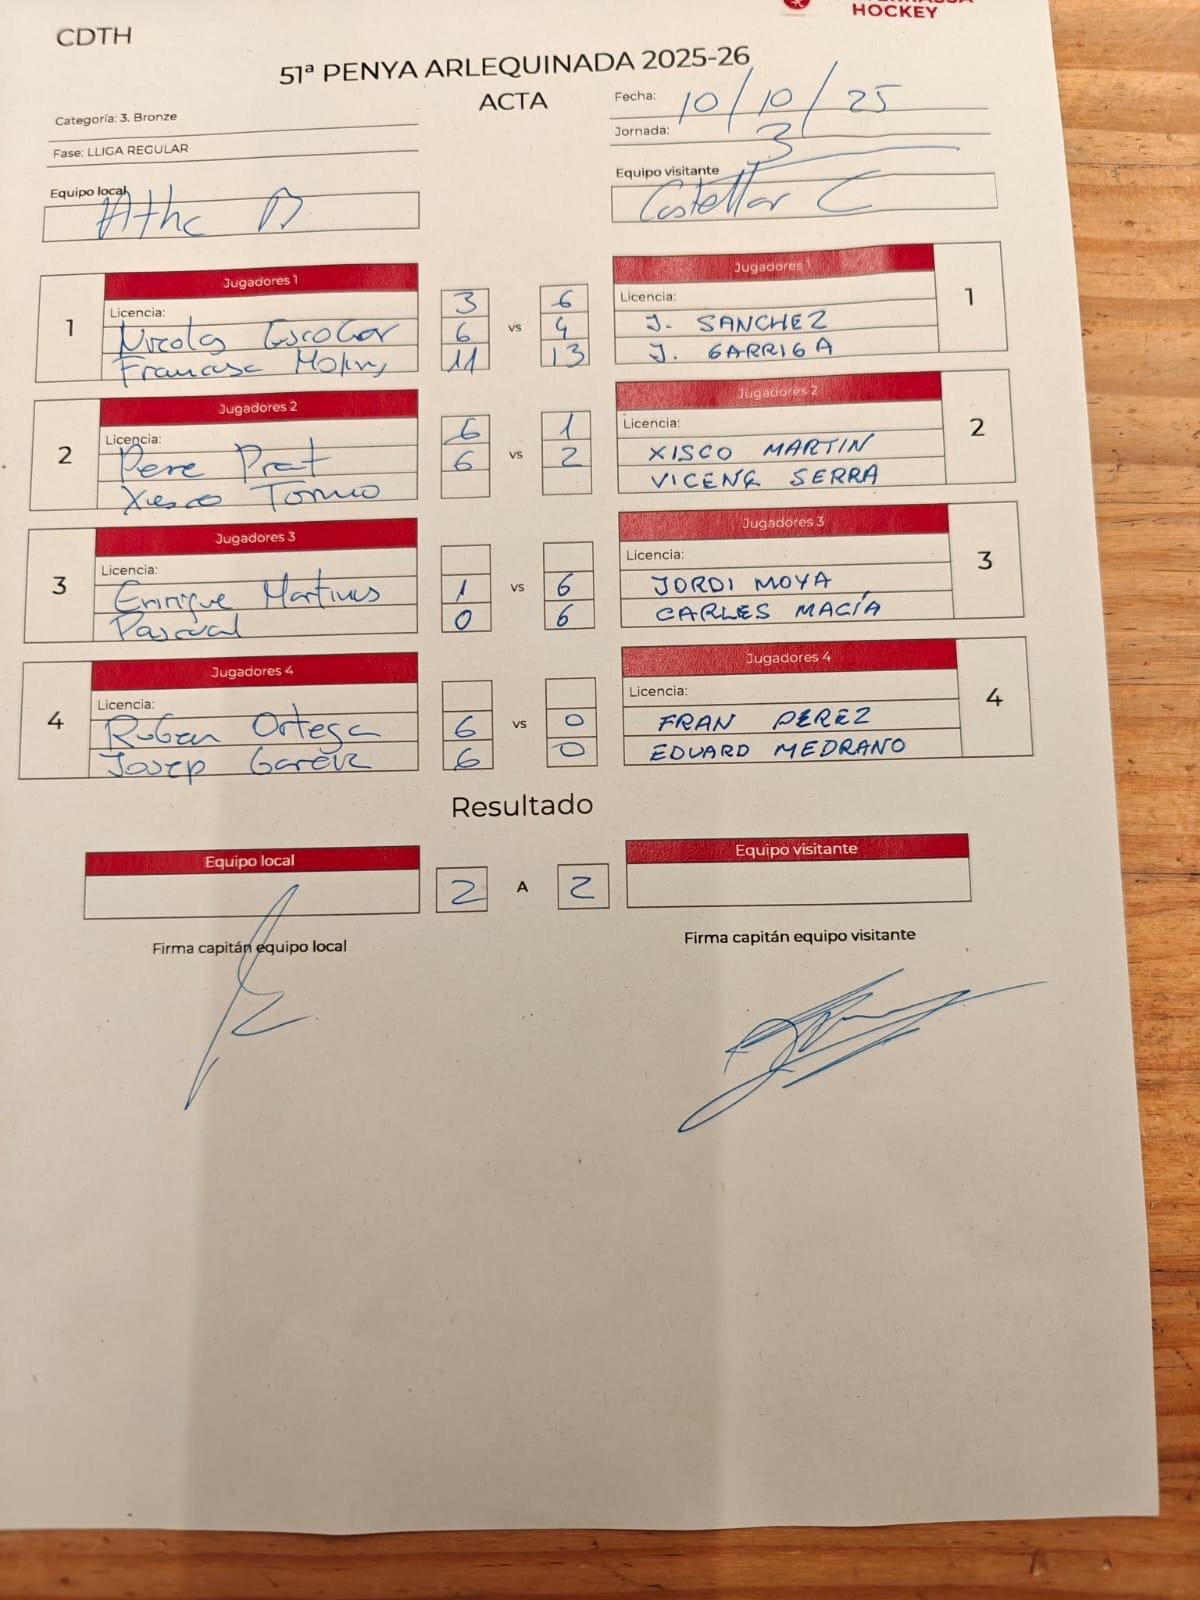 HOCKEY
CDTH
51ª PENYA ARLEQUINADA 2025-26
ACTA
Fecha: 10/10/25
Categoría: 3. Bronze
Jornada: 3
Fase: LLIGA REGULAR
Equipo local
Equipo visitante
Athc B
Castellar C
Jugadores 1
Jugadores 1
1
Licencia:
3
vs
6
Licencia:
1
Nicolas Escobar
6
4
J. SANCHEZ
Francesc
11
13
J. GARRIGA
Jugadores 2
Jugadores 2
2
Licencia:
6
vs
1
Licencia:
2
Pere Prat
6
2
XISCO MARTIN
VICENÇ SERRA
Jugadores 3
Jugadores 3
3
Licencia:
vs
Licencia:
3
Enrique Martines
1
6
JORDI MOYA
Pascual
0
6
CARLES MACÍA
Jugadores 4
Jugadores 4
4
Licencia:
vs
Licencia:
4
Ruben Ortega
6
0
FRAN PEREZ
Josep
6
0
EDUARD MEDRANO
Resultado
Equipo local
Equipo visitante
2
A
2
Firma capitán equipo local
Firma capitán equipo visitante